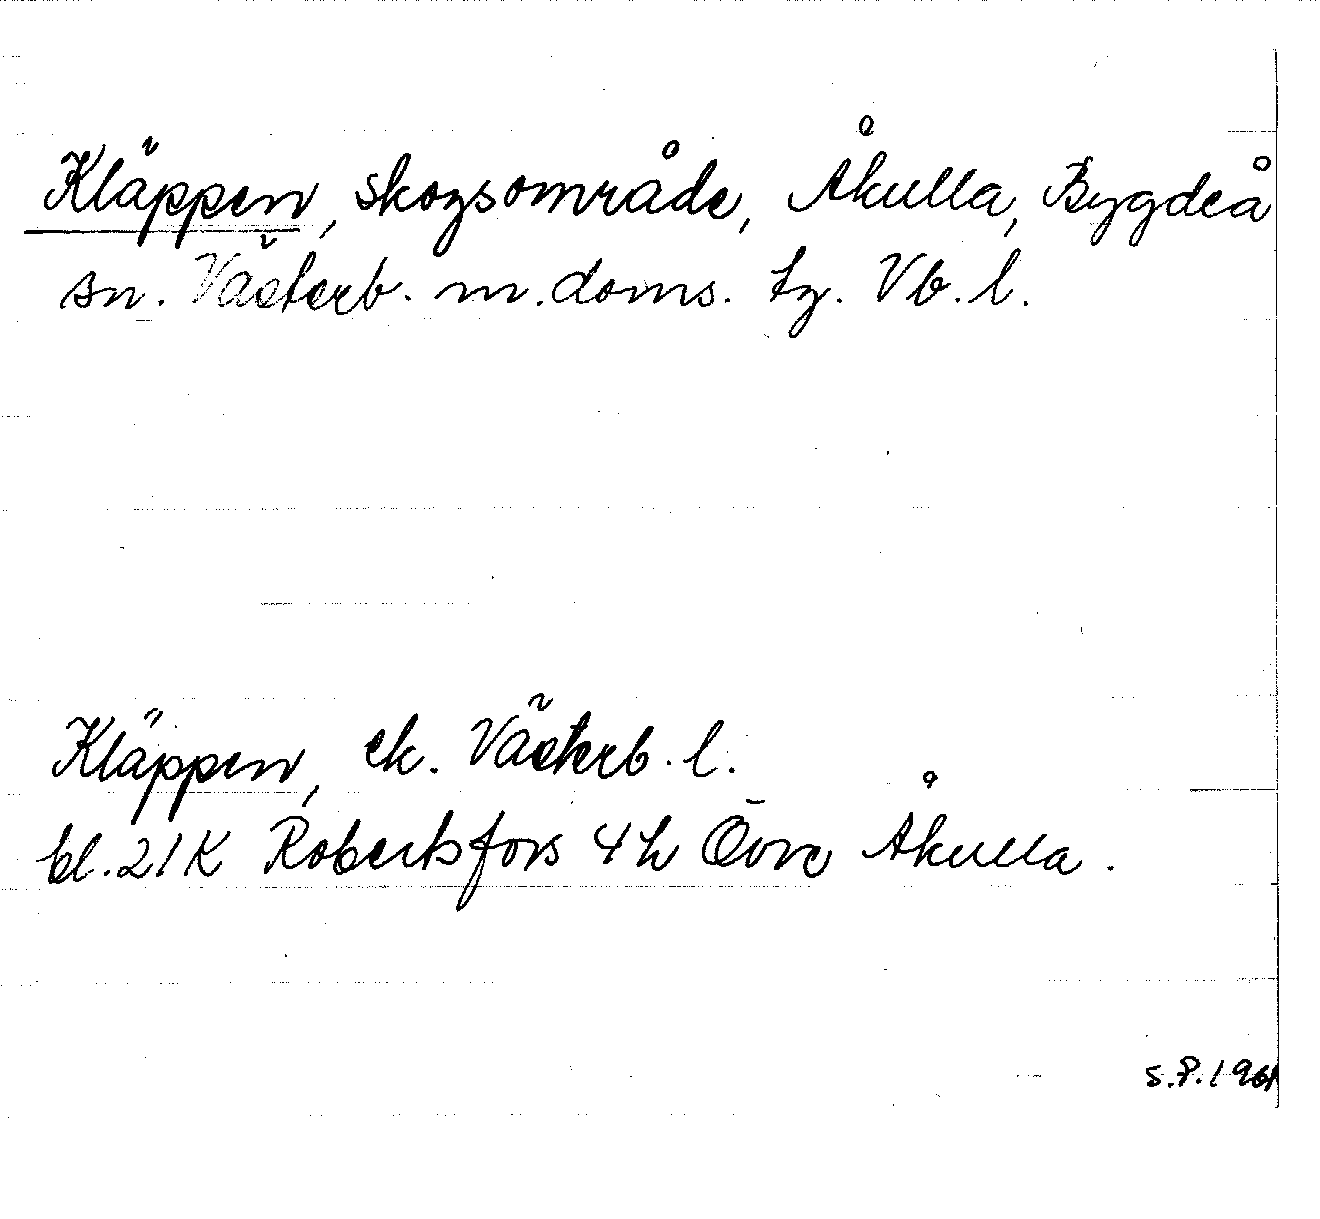 Kläppen, skogsområde, Åkulla, Bygdeå
sn. Västerb. m. doms. tg. Vb. l.
Kläppen, ek. Västerb. l.
bl. 21K Robertsfors 4h Övre Åkulla.
S.P. 1961